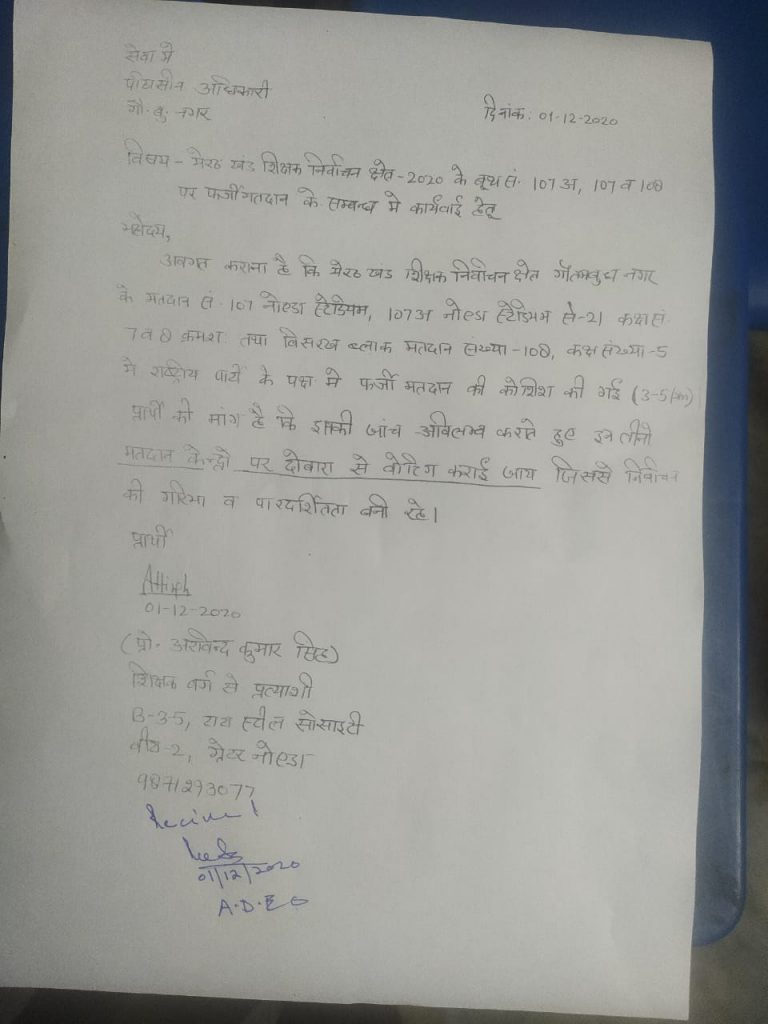 सेवा में
पीठासीन अधिकारी
गौ. बु. नगर
दिनांक: 01-12-2020
विषय - मेरठ खंड शिक्षक निर्वाचन क्षेत्र-2020 के बूथ सं. 107अ, 107 व 108
पर फर्जी मतदान के सम्बन्ध मे कार्यवाई हेतू
महोदय,
अवगत कराना है कि मेरठ खंड शिक्षक निर्वाचन क्षेत्र गौतमबुध नगर
के मतदान सं. 107 नोएडा स्टेडियम, 107अ नोएडा स्टेडियम से-21 कक्ष सं.
7 व 8 क्रमश: तथा विसरख ब्लाक मतदान संख्या-108, कक्ष संख्या-5
मे राष्ट्रीय पार्टी के पक्ष मे फर्जी मतदान की कोशिश की गई (3-5 pm)
प्रार्थी की मांग है कि इसकी जांच अविलम्ब कराते हुए इन तीनो
मतदान केन्द्रो पर दोबारा से वोटिंग कराई जाय जिससे निर्वाचन
की गरिमा व पारदर्शितता बनी रहे।
प्रार्थी
01-12-2020
(प्रो. अरविन्द कुमार सिंह)
शिक्षक वर्ग से प्रत्याशी
B-35, स्टील सोसाइटी
बीटा-2, ग्रेटर नोएडा
9871293077
01/12/2020
A.D.E.O